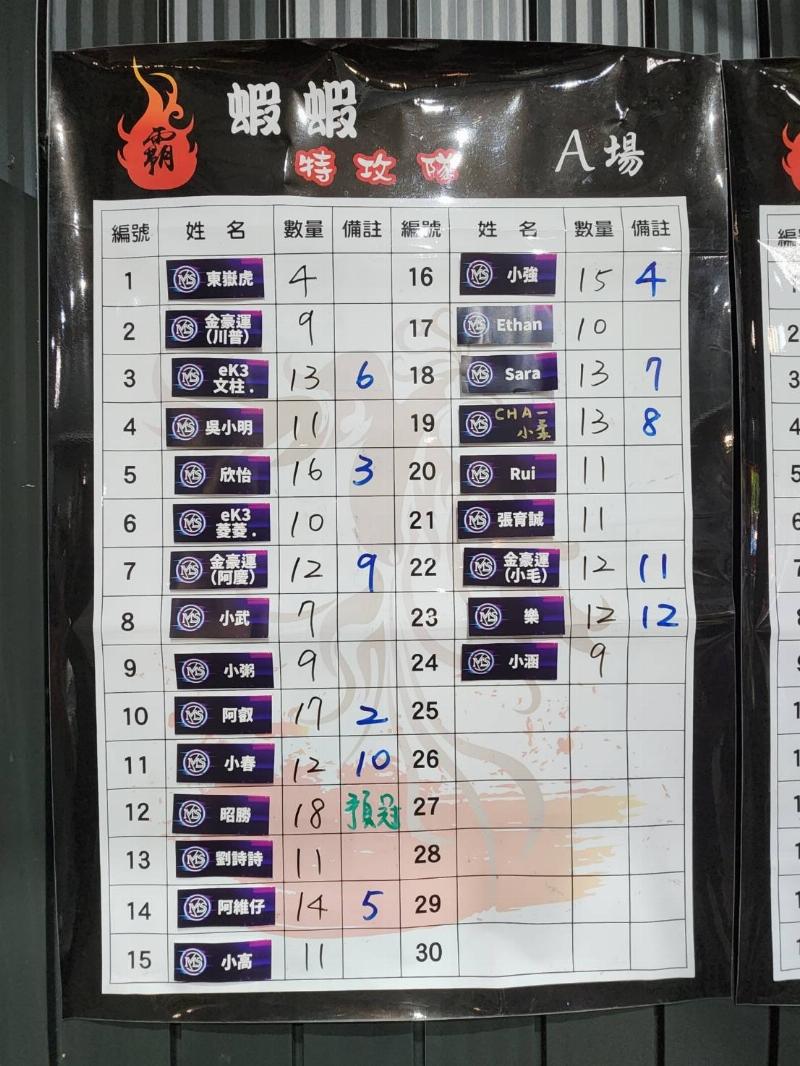 霸
蝦蝦
特攻隊
A場
編號 姓名 數量 備註 編號 姓名 數量 備註
1 MS 東嶽虎 4 16 MS 小強 15 4
2 MS 金豪運(川普) 9 17 MS Ethan 10
3 MS eK3文柱. 13 6 18 MS Sara 13 7
4 MS 吳小明 11 19 MS CHA一小柔 13 8
5 MS 欣怡 16 3 20 MS Rui 11
6 MS eK3菱菱. 10 21 MS 張育誠 11
7 MS 金豪運(阿慶) 12 9 22 MS 金豪運(小毛) 12 11
8 MS 小武 7 23 MS 樂 12 12
9 MS 小粥 9 24 MS 小涵 9
10 MS 阿叡 17 2 25
11 MS 小春 12 10 26
12 MS 昭勝 18 預冠 27
13 MS 劉詩詩 11 28
14 MS 阿維仔 14 5 29
15 MS 小高 11 30